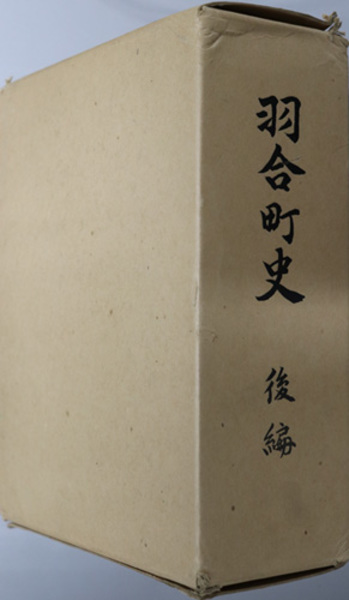 羽合町史 後編